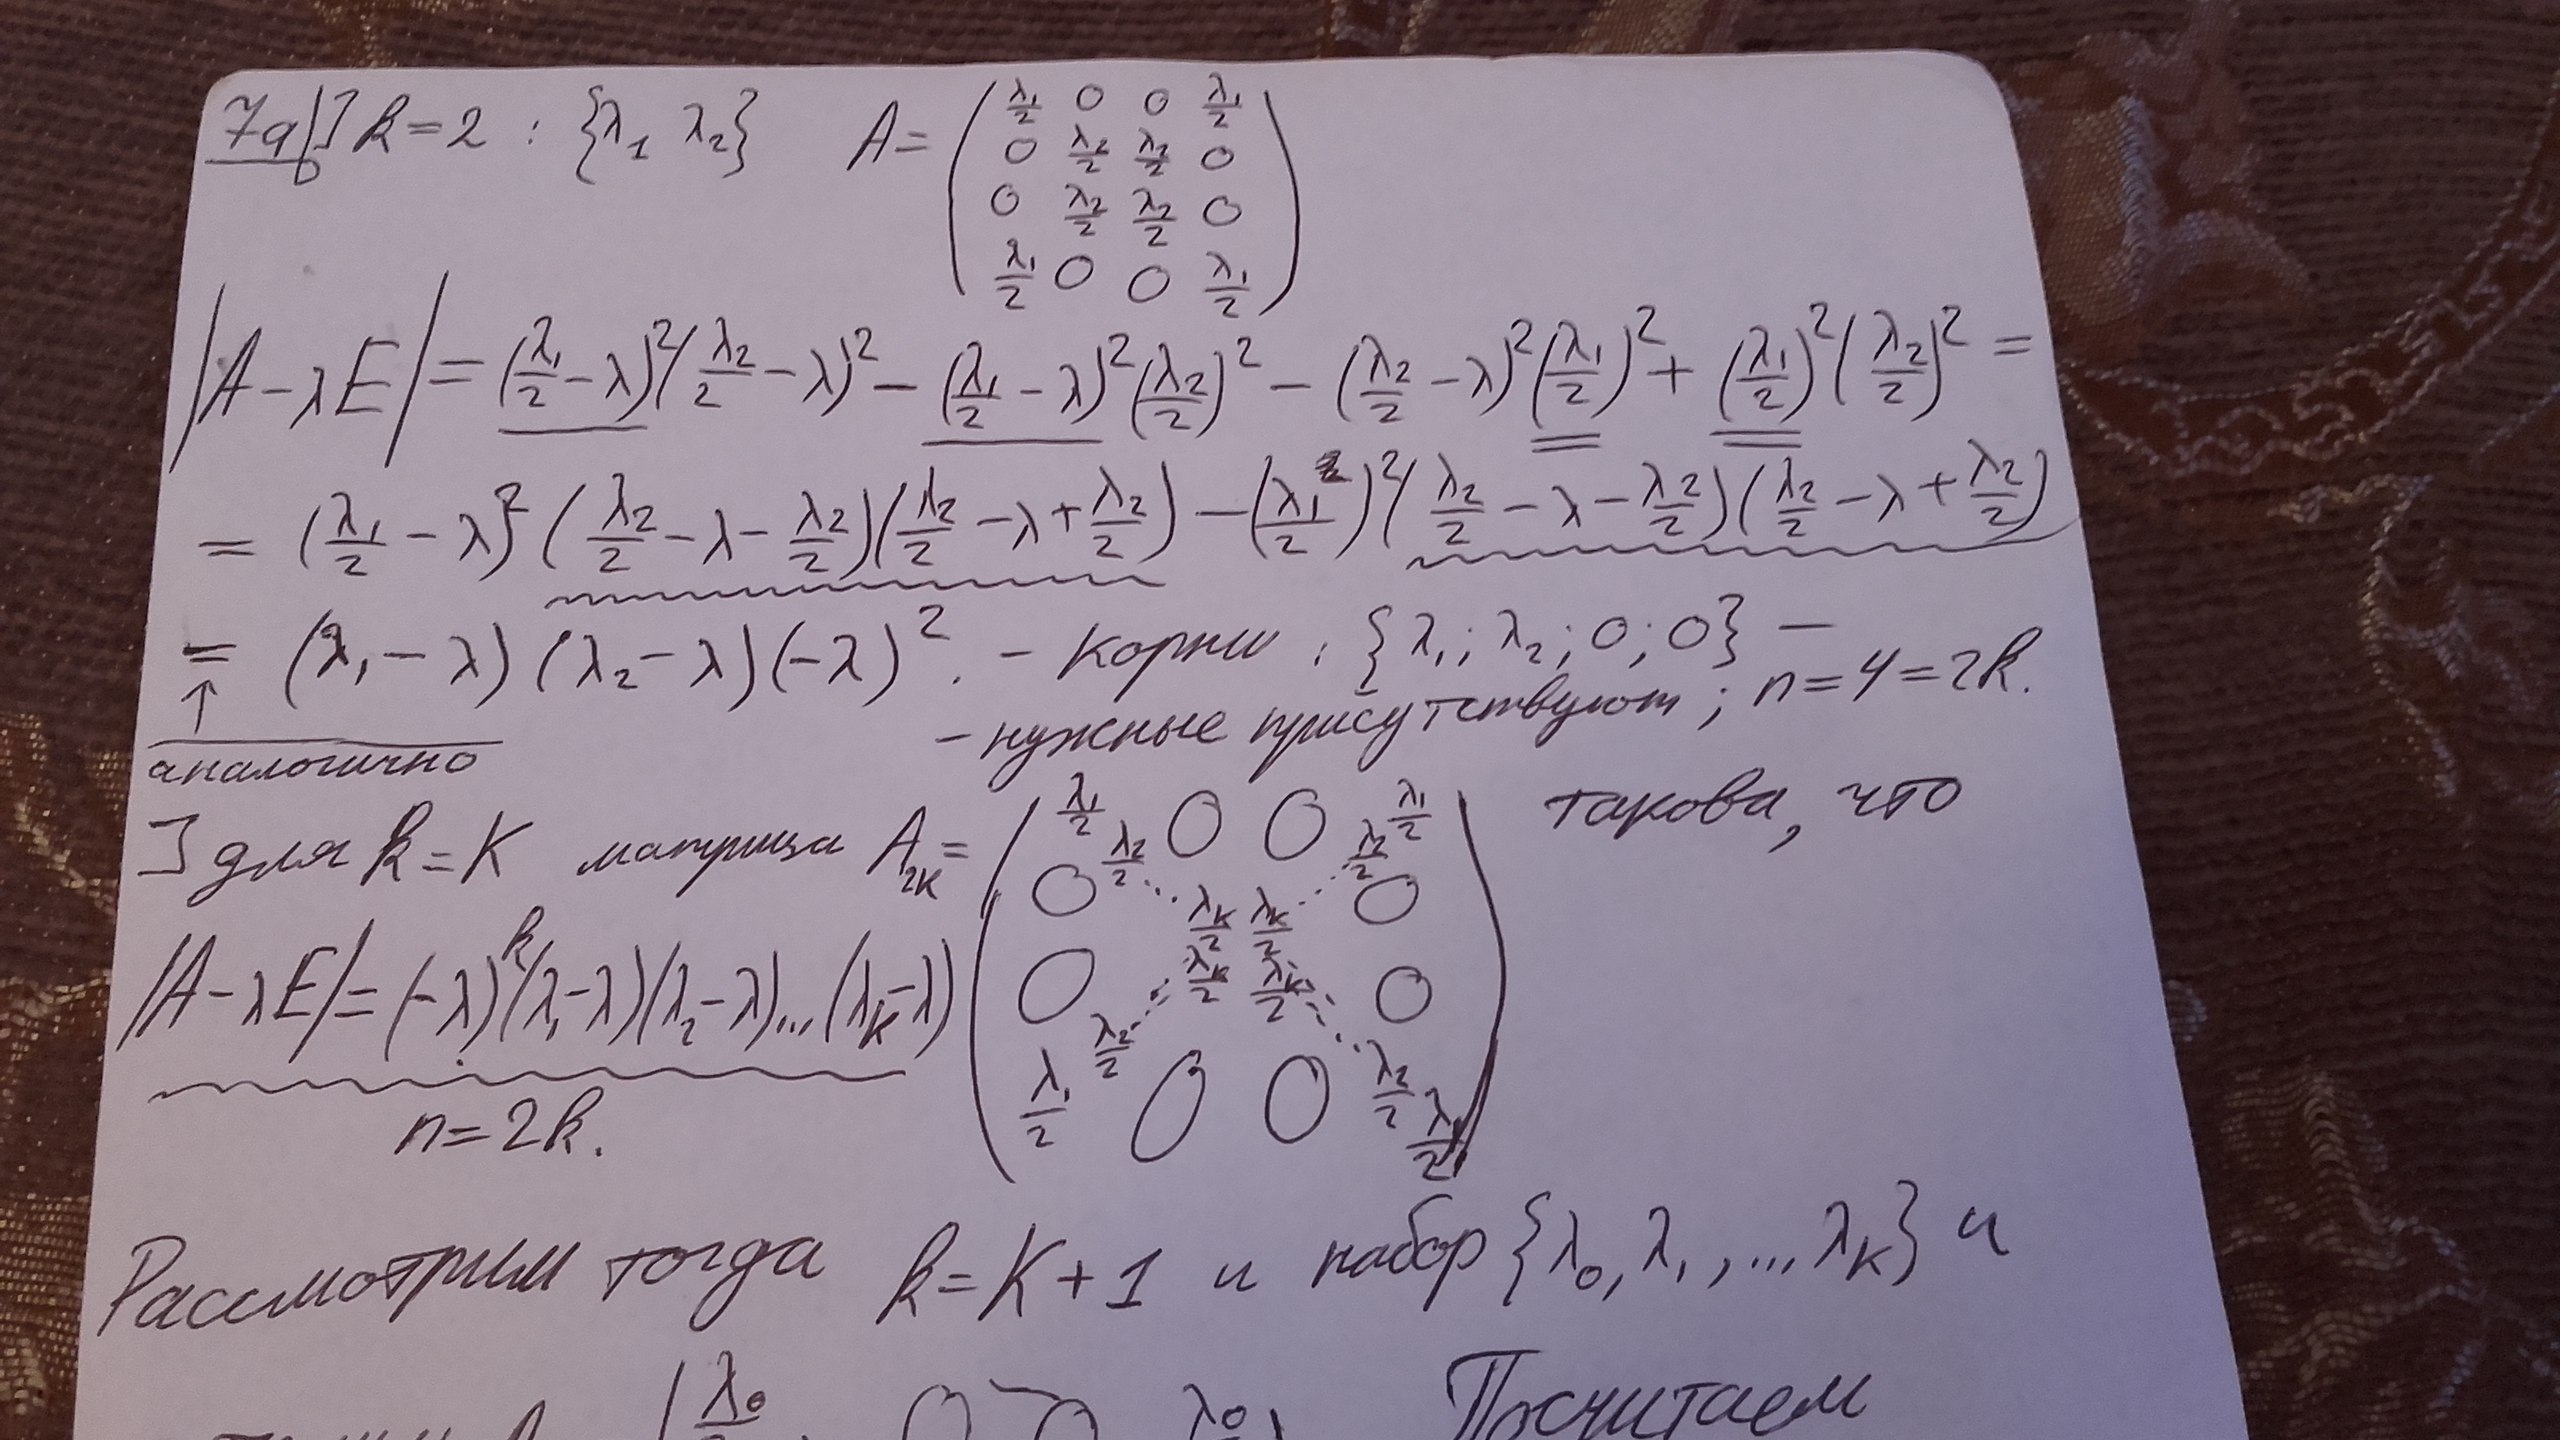 7a) ] k=2 : {λ₁ λ₂} A = ( λ₁/2 0 0 λ₁/2
0 λ₂/2 λ₂/2 0
0 λ₂/2 λ₂/2 0
λ₁/2 0 0 λ₁/2 )
|A-λE| = (λ₁/2 - λ)²(λ₂/2 - λ)² - (λ₁/2 - λ)²(λ₂/2)² - (λ₂/2 - λ)²(λ₁/2)² + (λ₁/2)²(λ₂/2)² =
= (λ₁/2 - λ)²(λ₂/2 - λ - λ₂/2)(λ₂/2 - λ + λ₂/2) - (λ₁/2)²(λ₂/2 - λ - λ₂/2)(λ₂/2 - λ + λ₂/2)
= (λ₁ - λ)(λ₂ - λ)(-λ)². - корни : {λ₁; λ₂; 0; 0} -
↑
аналогично
- нужные присутствуют ; n=4=2k.
] для k=K матрица A₂ₖ = ( λ₁/2 0 0 λ₁/2
0 λ₂/2 ⋱ λₖ/2 λₖ/2 ⋰ λ₂/2 0
0 λ₂/2 ⋰ λₖ/2 λₖ/2 ⋱ λ₂/2 0
λ₁/2 0 0 λ₁/2 ) такова, что
|A-λE| = (-λ)ᵏ(λ₁-λ)(λ₂-λ)...(λₖ-λ)
n=2k.
Рассмотрим тогда k=K+1 и набор {λ₀, λ₁, ... λₖ} и
λ₀ 0 0 λ₀ Посчитаем